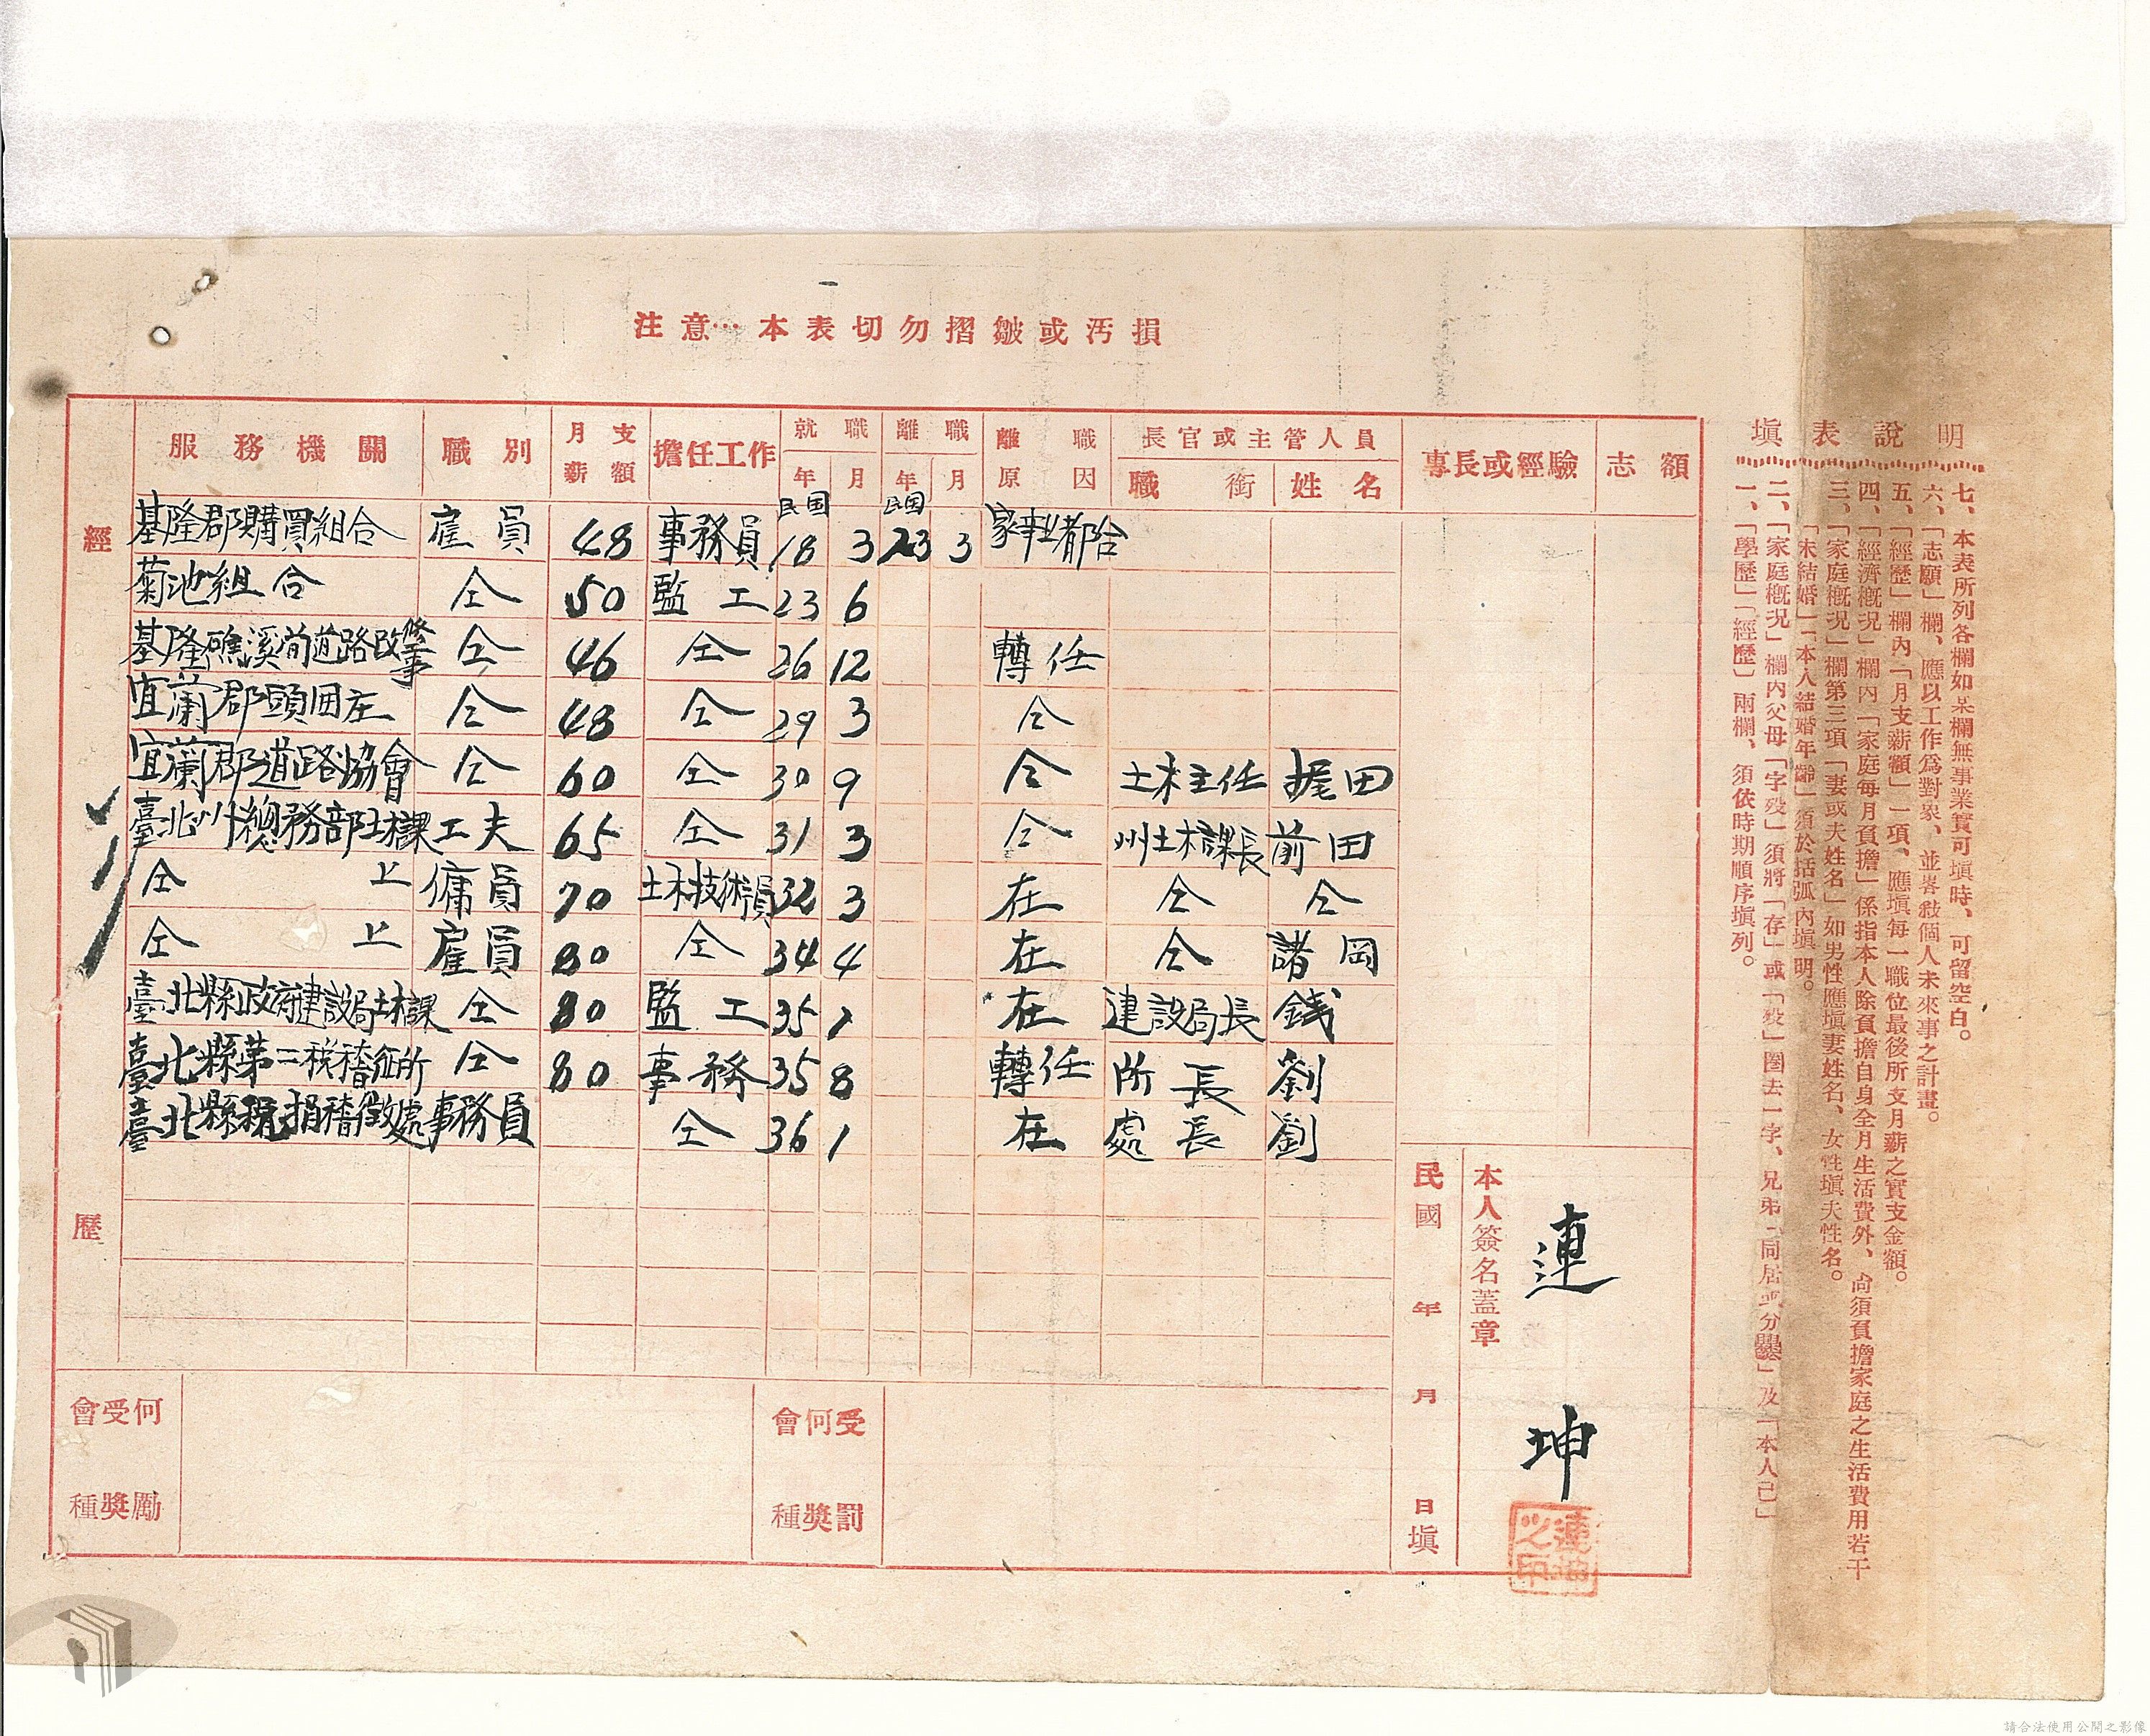 注意…本表切勿摺皺或汚損
經歷
服務機關 職別 月支薪額 擔任工作 就職 年 月 離職 年 月 離職原因 長官或主管人員 職銜 姓名 專長或經驗 志額
基隆郡購買組合 雇員 48 事務員 民国18 3 民国23 3 家事上都合
菊池組合 仝 50 監工 23 6
基隆礁溪前道路改修工事 仝 46 仝 26 12 轉任
宜蘭郡頭囲庄 仝 48 仝 29 3 仝
宜蘭郡道路協會 仝 60 仝 30 9 仝 土木主任 梶田
臺北州總務部土木課 工夫 65 仝 31 3 仝 州土木課長 前田
仝上 傭員 70 土木技術員 32 3 在 仝 仝
仝上 雇員 80 仝 34 4 在 仝 諸岡
臺北縣政府建設局土木課 仝 80 監工 35 1 在 建設局長 銭
臺北縣第二稅稽征所 仝 80 事務 35 8 轉任 所長 劉
臺北縣稅捐稽徵處 事務員 仝 36 1 在 處長 劉
會受何種獎勵
會何受種獎罰
本人簽名蓋章
連坤
連坤之印
民國 年 月 日填
填表說明
一、「學歷」「經歷」兩欄、須依時期順序塡列。
二、「家庭概况」欄內父母「字殁」須將「存」或「殁」圈去一字、兄弟「同居或分爨」及「本人已」
「未結婚」「本人結婚年齡」須於括弧內塡明。
三、「家庭概况」欄第三項「妻或夫姓名」如男性應塡妻姓名、女性塡夫性名。
四、「經濟概况」欄內「家庭每月負擔」係指本人除負擔自身全月生活費外、尙須負擔家庭之生活費用若干
五、「經歷」欄內「月支薪額」一項、應塡每一職位最後所支月薪之實支金額。
六、「志願」欄、應以工作爲對象、並畧敍個人未來事之計畫。
七、本表所列各欄如某欄無事業實可塡時、可留空白。
請合法使用公開之影像